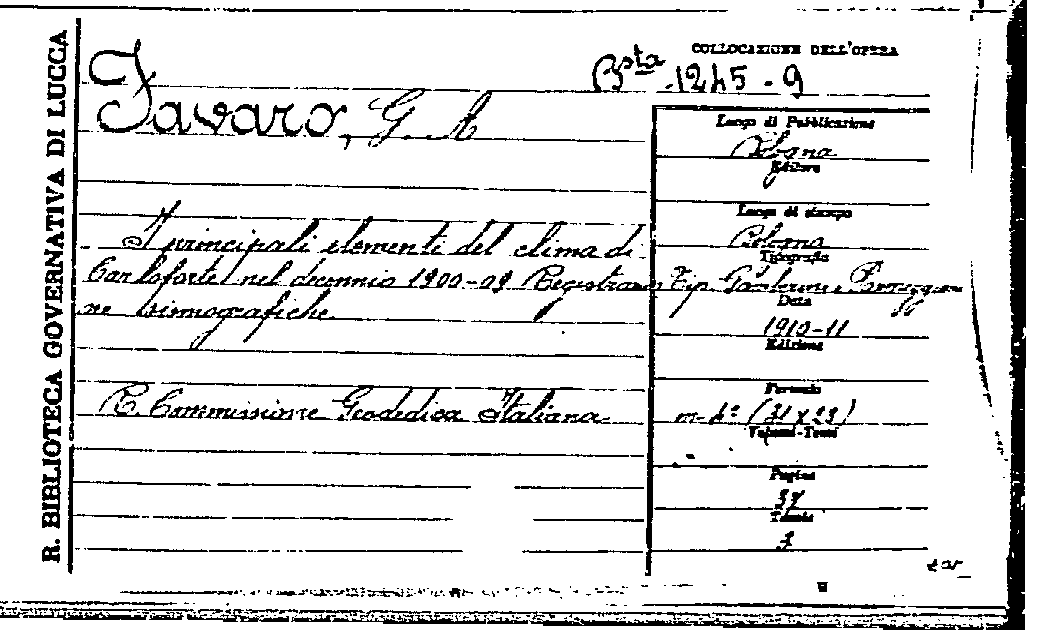 R. BIBLIOTECA GOVERNATIVA DI LUCCA
COLLOCAZIONE DELL'OPERA
Bsta 1245-9
Favaro, G. A
Luogo di Pubblicazione
Bologna
Editore
I principali elementi del clima di
Carloforte nel decennio 1900-09 Registrazio
ne termografiche
R. Commissione Geodedica Italiana
Luogo di stampo
Bologna
Tipografia
Tip.
Data
1910-11
Edizione
Formato
in-4° (31 x 23)
Volumi-Tomi
Pagine
37
Tavole